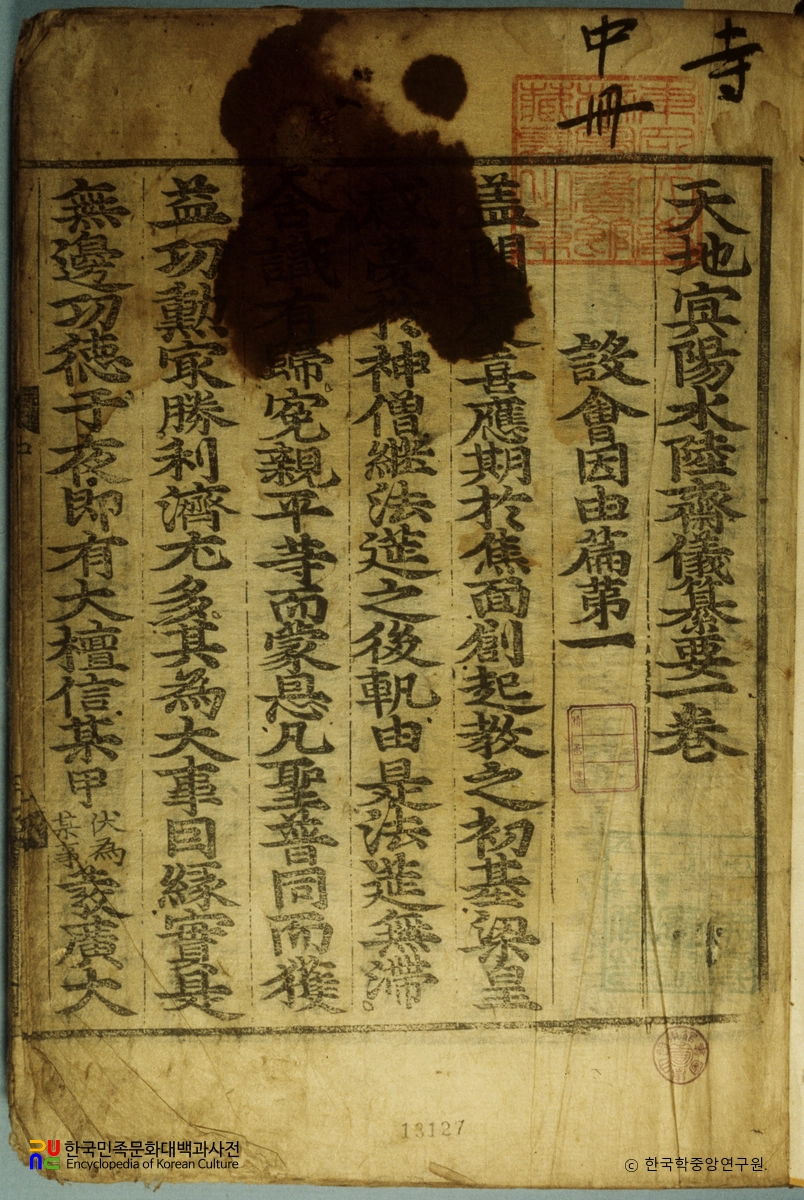 寺
中冊
天地冥陽水陸齋儀纂要一卷
設會因由篇第一
盖聞應期於焦面創起教之初基梁皇
神僧継法莚之後軌由是法莚無滯
含識有歸寃親平等而蒙恩凡聖普同而獲
益功勲寂勝利濟尤多其為大事因緣實是
無邊功德子夜即有大檀信某甲伏為某事發廣大
13127
한국민족문화대백과사전
Encyclopedia of Korean Culture
ⓒ 한국학중앙연구원